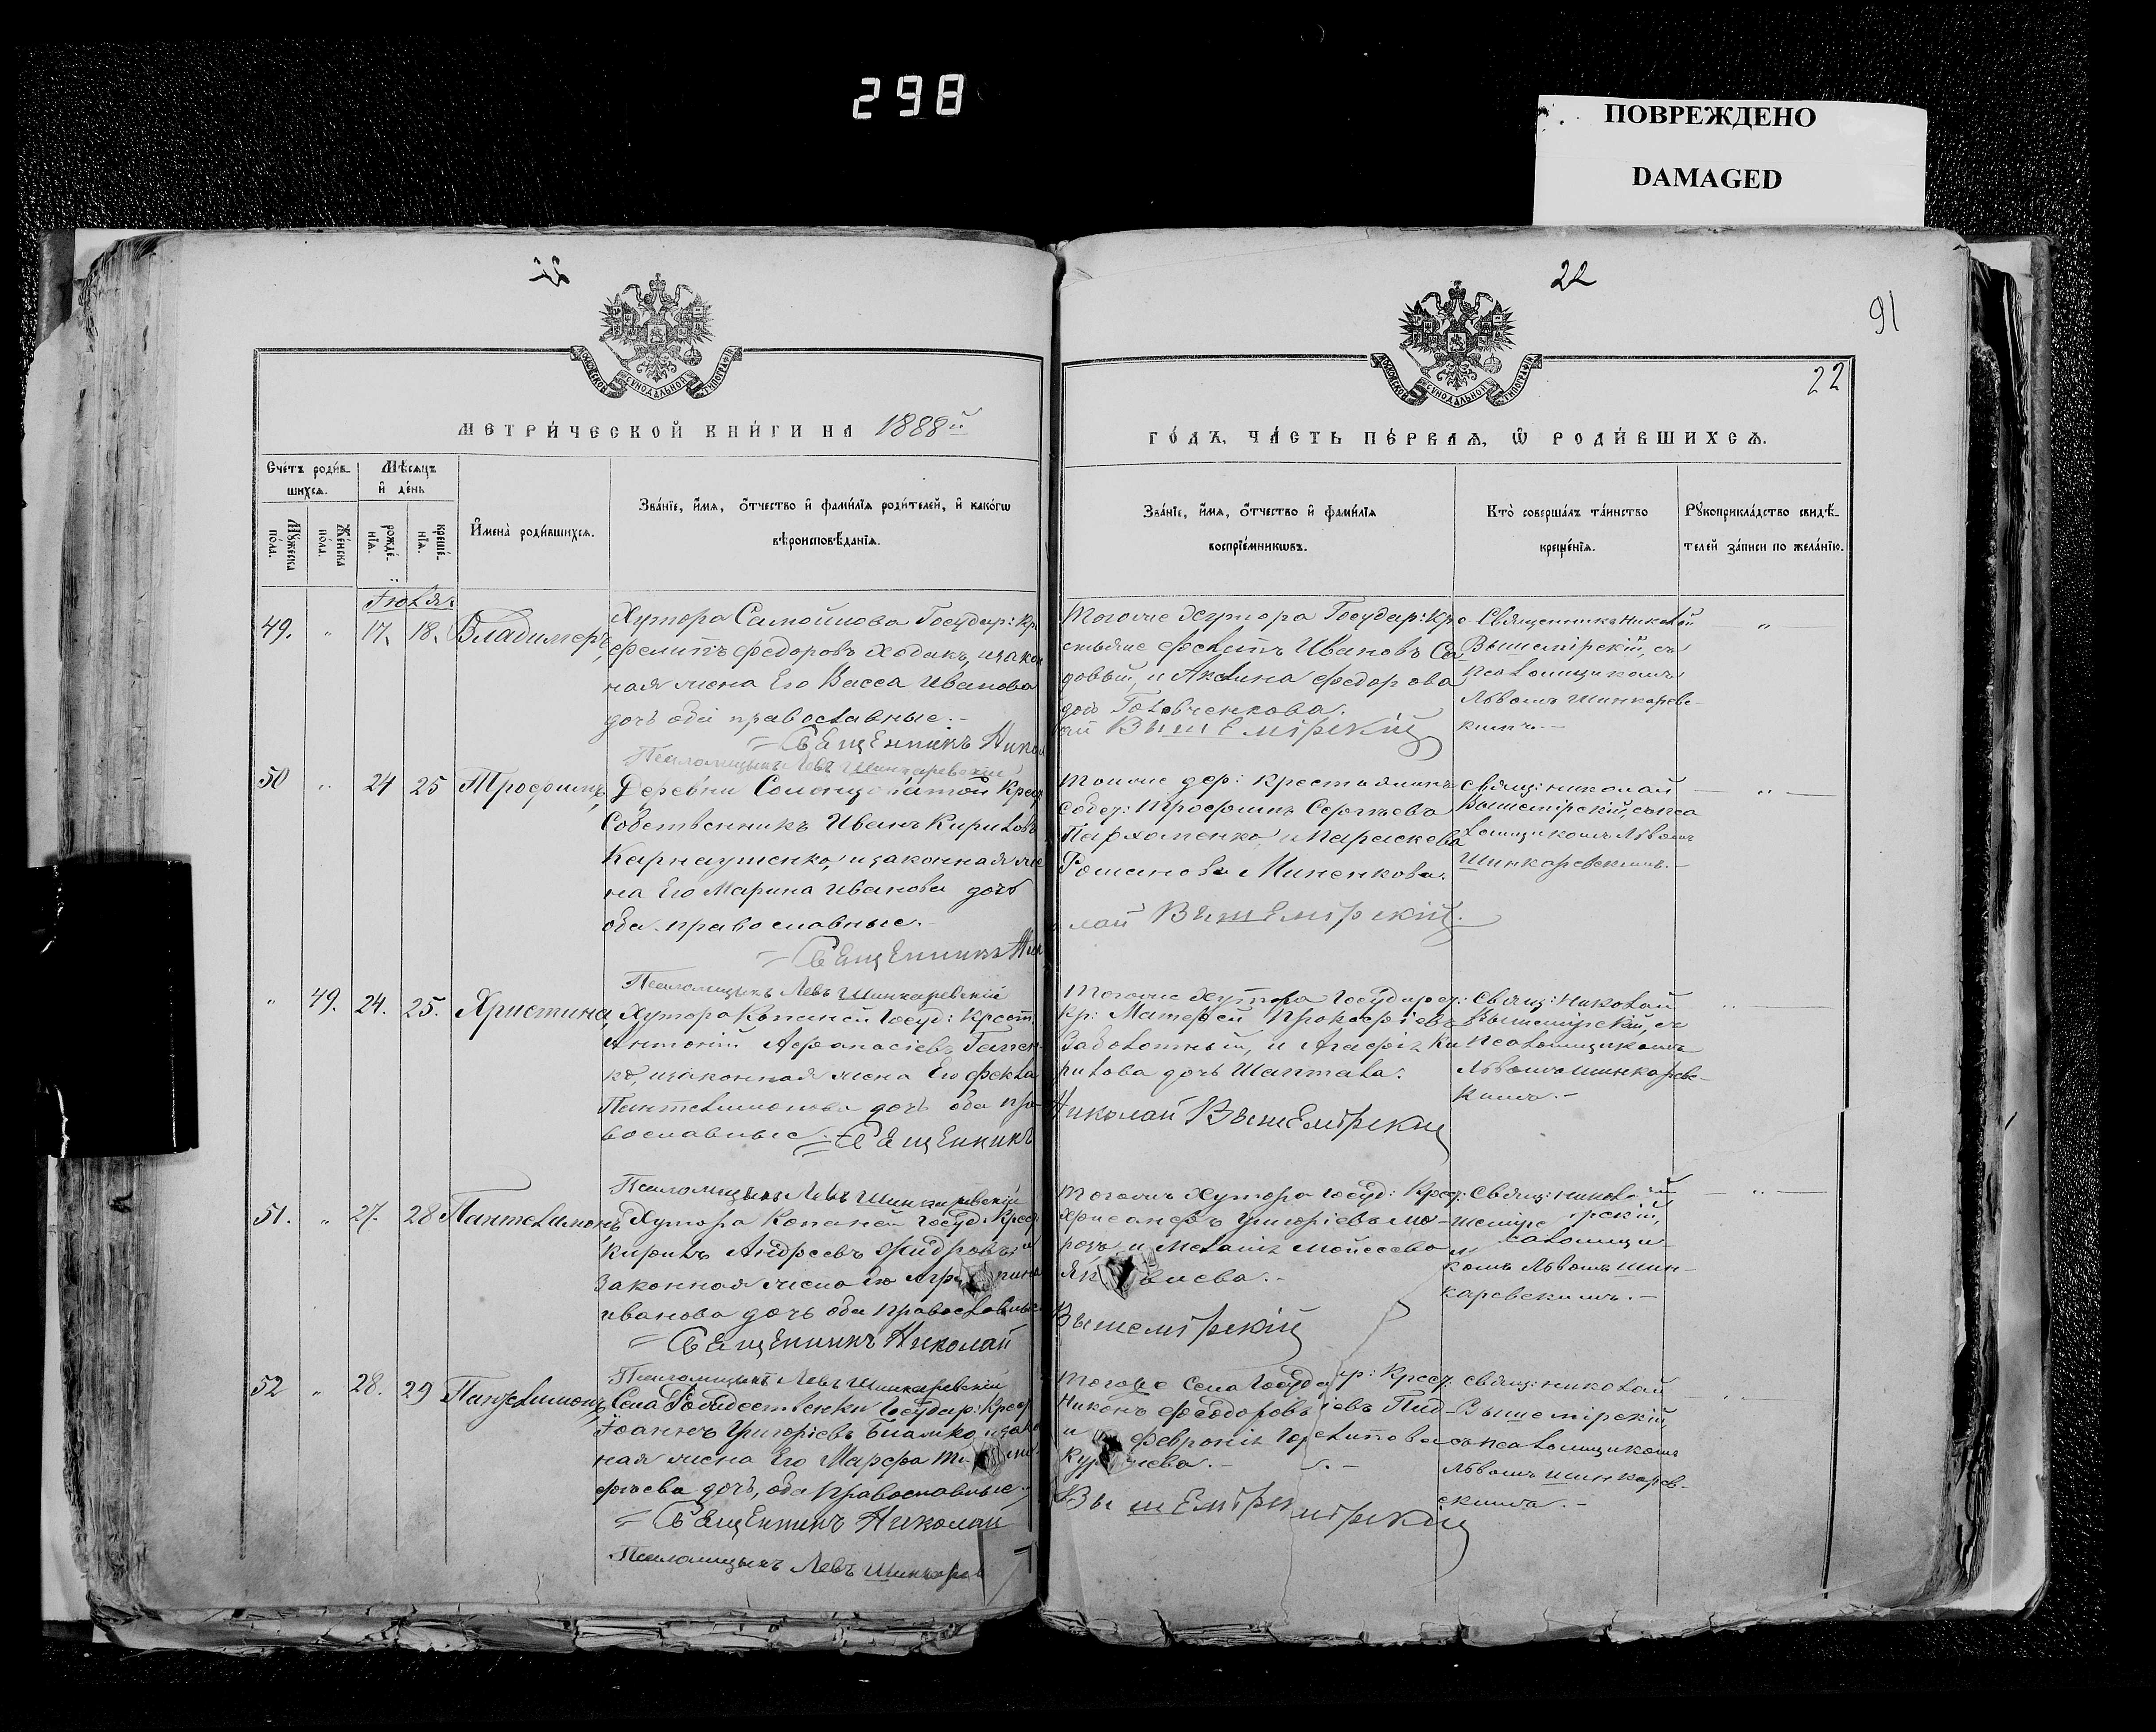 298
ПОВРЕЖДЕНО
DAMAGED
22
91
22
МОСКОВСКОЙ СѴНОДАЛЬНОЙ ТИПОГРАФІИ
МОСКОВСКОЙ СѴНОДАЛЬНОЙ ТИПОГРАФІИ
МЕТРИ́ЧЕСКОЙ КНИ́ГИ НА 1888й
ГО́ДЪ, ЧА́СТЬ ПЕ́РВАѦ, Ѽ РОДИ́ВШИХСѦ.
Сче́тъ роди́в-
шихсѧ.
Мѣ́сѧцъ
и҆ де́нь
Мꙋ́жеска
по́ла.
Же́нска
по́ла.
рожде́-
нїѧ.
креще́-
нїѧ.
И҆мена̀ роди́вшихсѧ.
Зва́нїе, и҆́мѧ, ѻ҆́тчество и҆ фами́лїѧ роди́телей, и҆ како́гѡ
вѣроисповѣ́данїѧ.
Зва́нїе, и҆́мѧ, ѻ҆́тчество и҆ фами́лїѧ
воспрїе́мникѡвъ.
Кто̀ соверша́лъ та́инство
креще́нїѧ.
Рꙋкоприкла́дство свидѣ́-
телей за́писи по жела́нїю.
Іюля.
49. " 17. 18. Владимеръ,
Хутора Самойлова Государ: Кр.
Филипъ Федоровъ Ходакъ, и закон
ная жена Его Васса Иванова
дочь оба православные.-
Священникъ Никол
Псаломщикъ Левъ Шинкаревскій
Тогоже Хутора Государ: Кре
стьяне Филипъ Ивановъ Са
довый, и Акилина Федорова
дочь Головченкова.
ай Вышемірскій
Священникъ Николай
Вышемірскій, съ
псаломщикомъ
Львомъ Шинкаревс-
кимъ.-
"
50 " 24 25 Трофимъ,
Деревни Солонцоватой Крест
Собственникъ Иванъ Кириловъ
Карнаушенко, и законная же
на Его Марина Иванова дочь
оба православные.-
Священникъ Ник
Псаломщикъ Левъ Шинкаревскій
Тойже дер: Крестьянинъ
Собст: Трофимъ Сергѣевъ
Пархоменко, и Параскева
Романова Миненкова.
лай Вышемірскій.
Свящ: Николай
Вышемірскій, съ пса
ломщикомъ Львомъ
Шинкаревскимъ.-
"
" 49. 24. 25. Христина,
Хутора Копаней Госуд: Крест.
Антоній Афанасіевъ Гапен-
ко, и законная жена Его Фекла
Пантелимонова дочь оба пра
вославные.- Священникъ
Псаломщикъ Левъ Шинкаревскій
Тогоже Хутора Государ:
Кр: Матфей Прокофіевъ
Заболотный, и Агафія Ки
рилова дочь Шаптала.
Николай Вышемірскій
Свящ: Николай
Вышемірскій, съ
Псаломщикомъ
Львомъ Шинкаревс-
кимъ.-
"
51. " 27. 28 Пантелимонъ
Хутора Копаней Госуд: Крест
Кирилъ Андреевъ
Законная жена Его
Иванова дочь оба православные
Священникъ Николай
Псаломщикъ Левъ Шинкаревскій
Тогожъ Хутора Госуд: Крес:
Хрисанфъ Григоріевъ Мо-
розъ, и Меланія Моисеева
Вышемірскій
Свящ: Николай
комъ Львомъ Шин-
каревскимъ.-
"
52 " 28. 29 Пантелимонъ,
Села Рождественки Государ: Крест
Іоаннъ Григоріевъ и зако
ная жена Его Марфа
фѣева дочь, оба православные.
Священникъ Николай
Псаломщикъ Левъ Шинкарев
Тогоже Села Государ: Крест:
Никонъ
и Февронія
Вышемір мірскій
Свящ: Николай
Вышемірскій,
съ псаломщикомъ
Львомъ Шинкарев-
скимъ.-